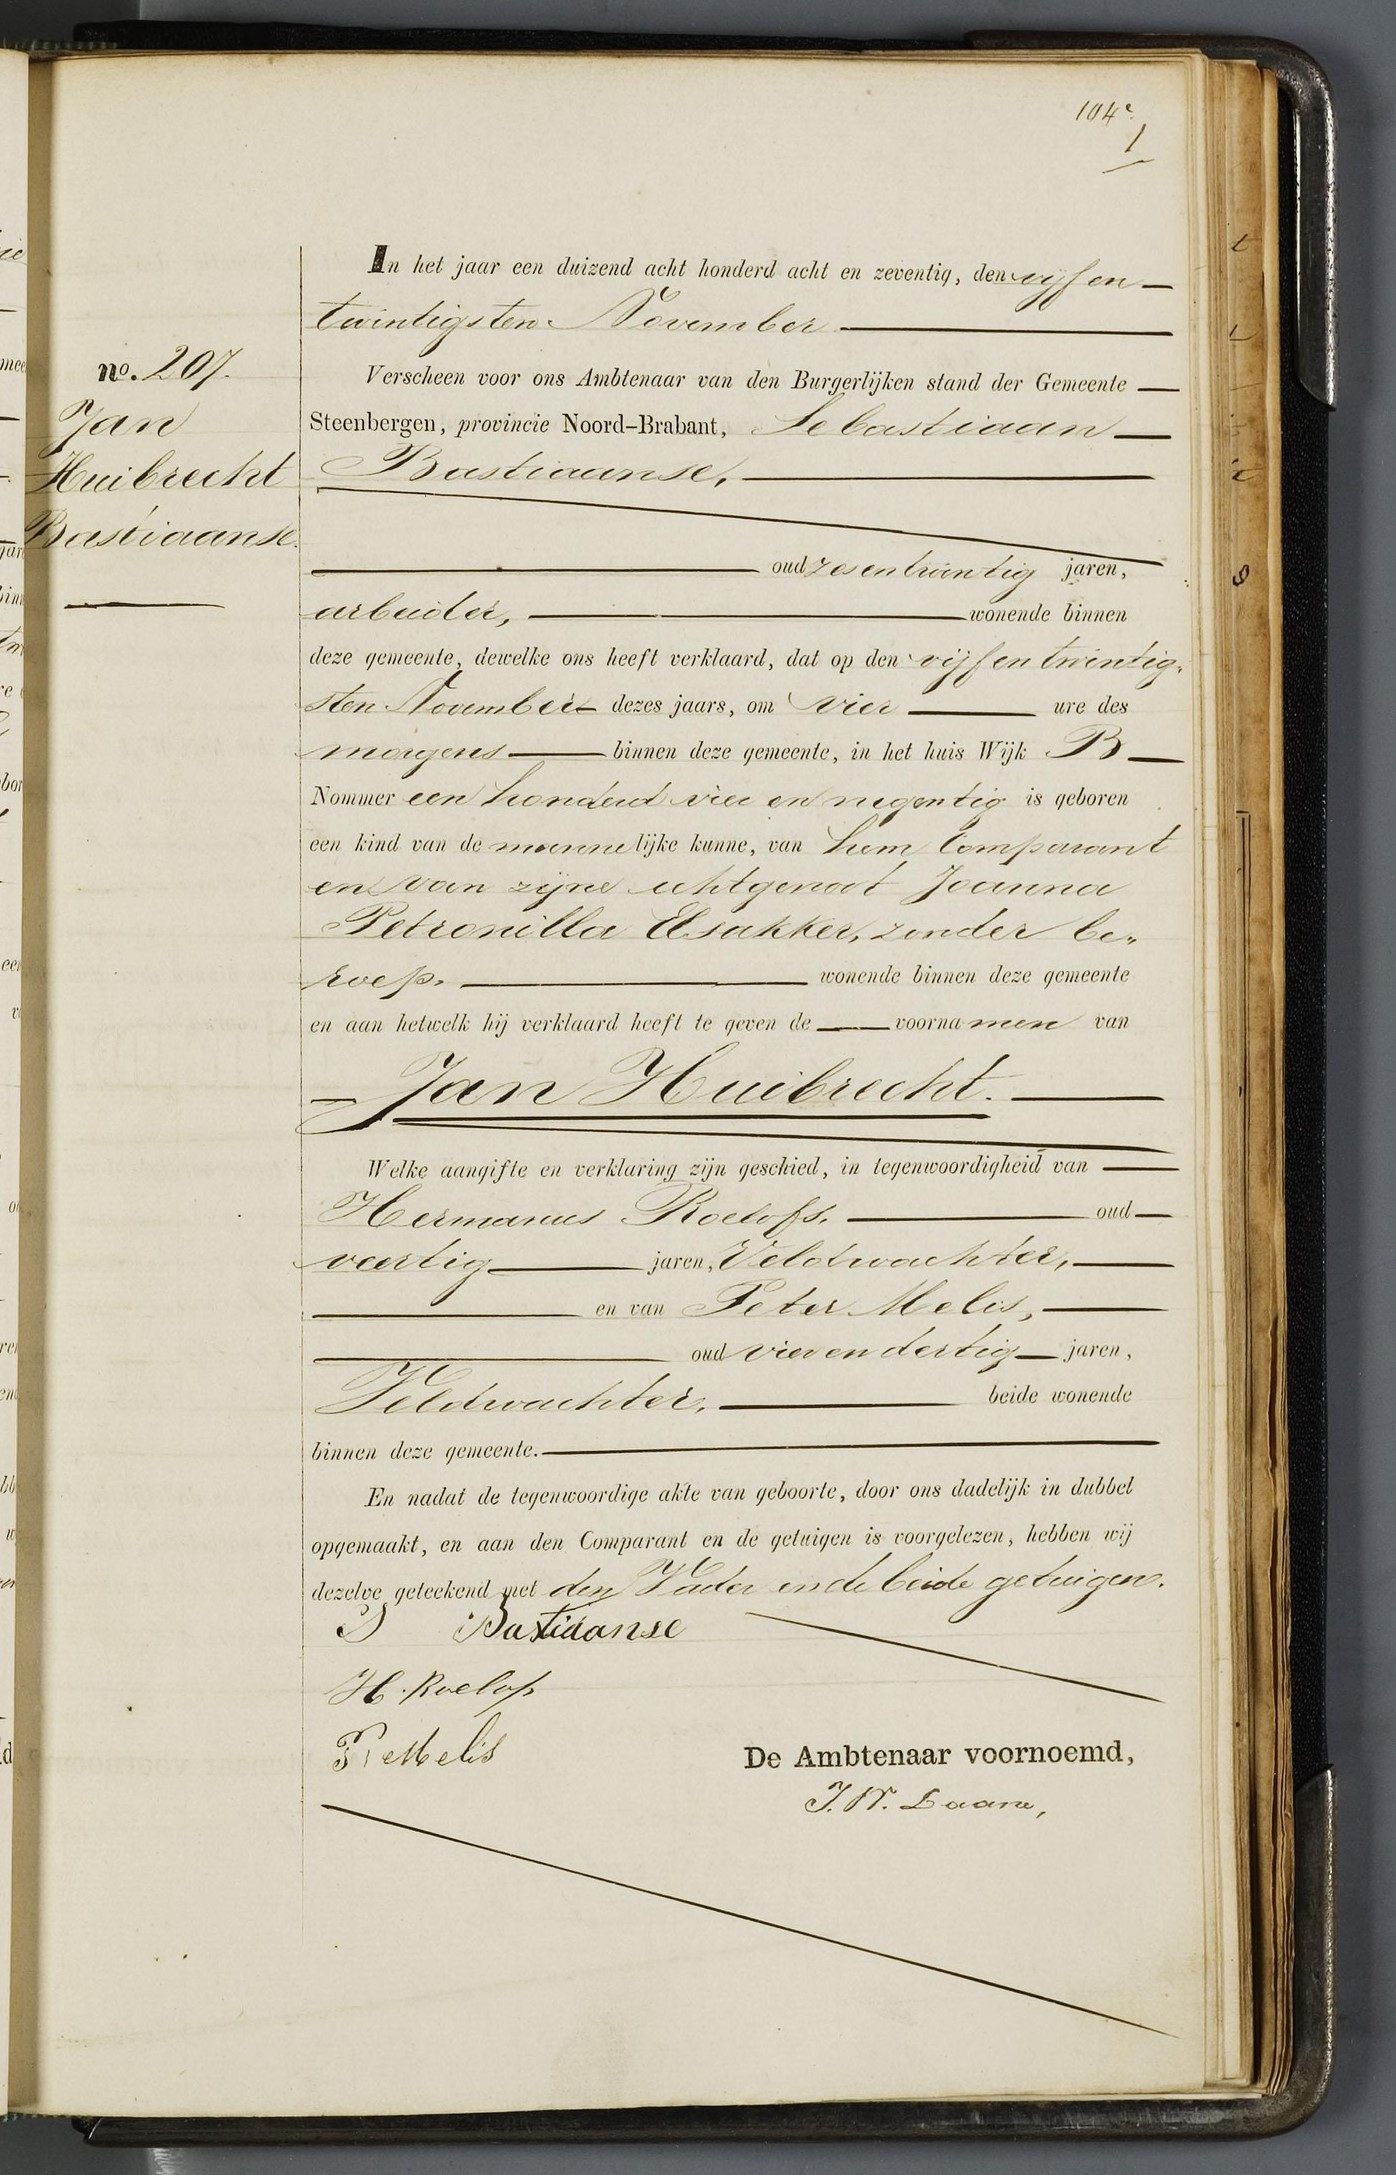 104e
1
In het jaar een duizend acht honderd acht en zeventig, den vijf en
twintigsten November
no. 207.
Jan
Huibrecht
Bastiaanse.
Verscheen voor ons Ambtenaar van den Burgerlijken stand der Gemeente
Steenbergen, provincie Noord-Brabant, Sebastiaan
Bastiaanse,
oud zesentwintig jaren,
arbeider, wonende binnen
deze gemeente, dewelke ons heeft verklaard, dat op den vijf en twintig-
sten November dezes jaars, om vier ure des
morgens binnen deze gemeente, in het huis Wijk B
Nommer een honderd vier en negentig is geboren
een kind van de mannelijke kunne, van hem Comparant
en van zijne echtgenoot Joanna
Petronilla Elsakker, zonder be-
roep. wonende binnen deze gemeente
en aan hetwelk hij verklaard heeft te geven de voornamen van
Jan Huibrecht.
Welke aangifte en verklaring zijn geschied, in tegenwoordigheid van
Hermanus Roelofs. oud
veertig jaren, Veldwachter,
en van Peter Melis,
oud vier en dertig jaren,
Veldwachter. beide wonende
binnen deze gemeente.
En nadat de tegenwoordige akte van geboorte, door ons dadelijk in dubbel
opgemaakt, en aan den Comparant en de getuigen is voorgelezen, hebben wij
dezelve geteekend met den Vader en de beide getuigen.
S Bastiaanse
H. Roelofs
P Melis
De Ambtenaar voornoemd,